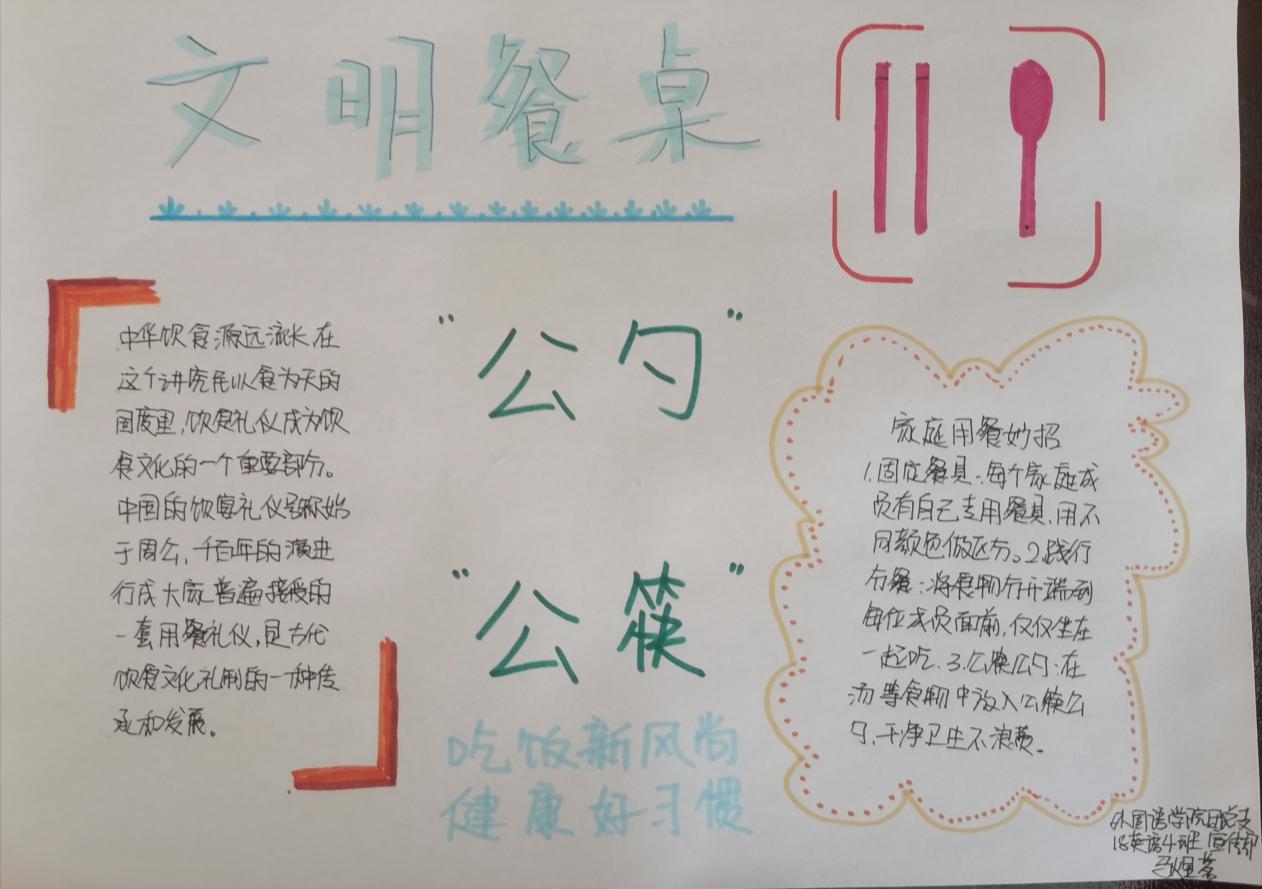 文明餐桌
中华饮食源远流长.在
这个讲究民以食为天的
国度里,饮食礼仪成为饮
食文化的一个重要部分。
中国的饮宴礼仪号称始
于周公,千百年的演进
形成大家普遍接受的
一套用餐礼仪,是古代
饮食文化礼制的一种传
承和发展。
“公勺”
“公筷”
吃饭新风尚
健康好习惯
家庭用餐妙招
1.固定餐具:每个家庭成
员有自己专用餐具,用不
同颜色做区分。2.践行
分餐:将食物分开端到
每位成员面前,仅仅坐在
一起吃.3.公筷公勺:在
汤等食物中放入公筷公
勺,干净卫生不浪费。
外国语学院团总支
18英语4班 宣传部